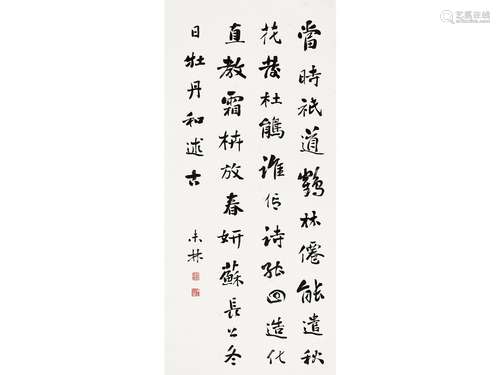 當時祇道鶴林僊能遣秋
花發杜鵑誰信詩能回造化
直教霜枿放春妍蘇長公冬
日牡丹和述古
未林
艺典中国
yidianchina.com